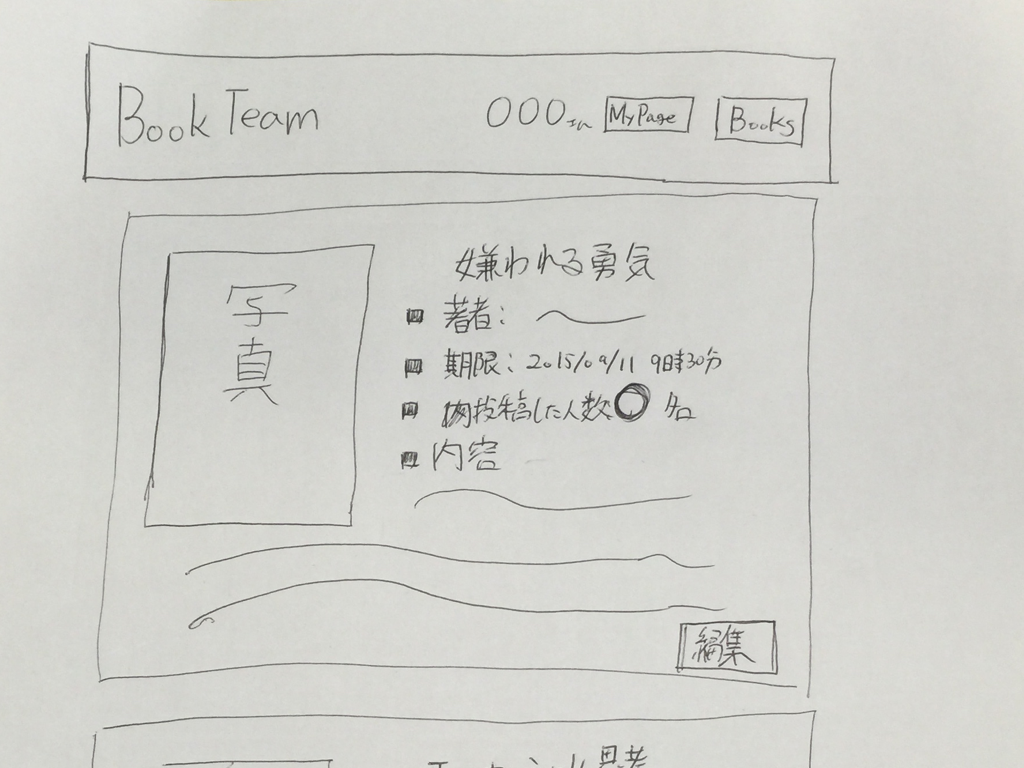 Book Team
○○○さん MyPage Books
写真
嫌われる勇気
著者:
期限: 2015/09/11 9時30分
投稿した人数 名
内容
編集
思考